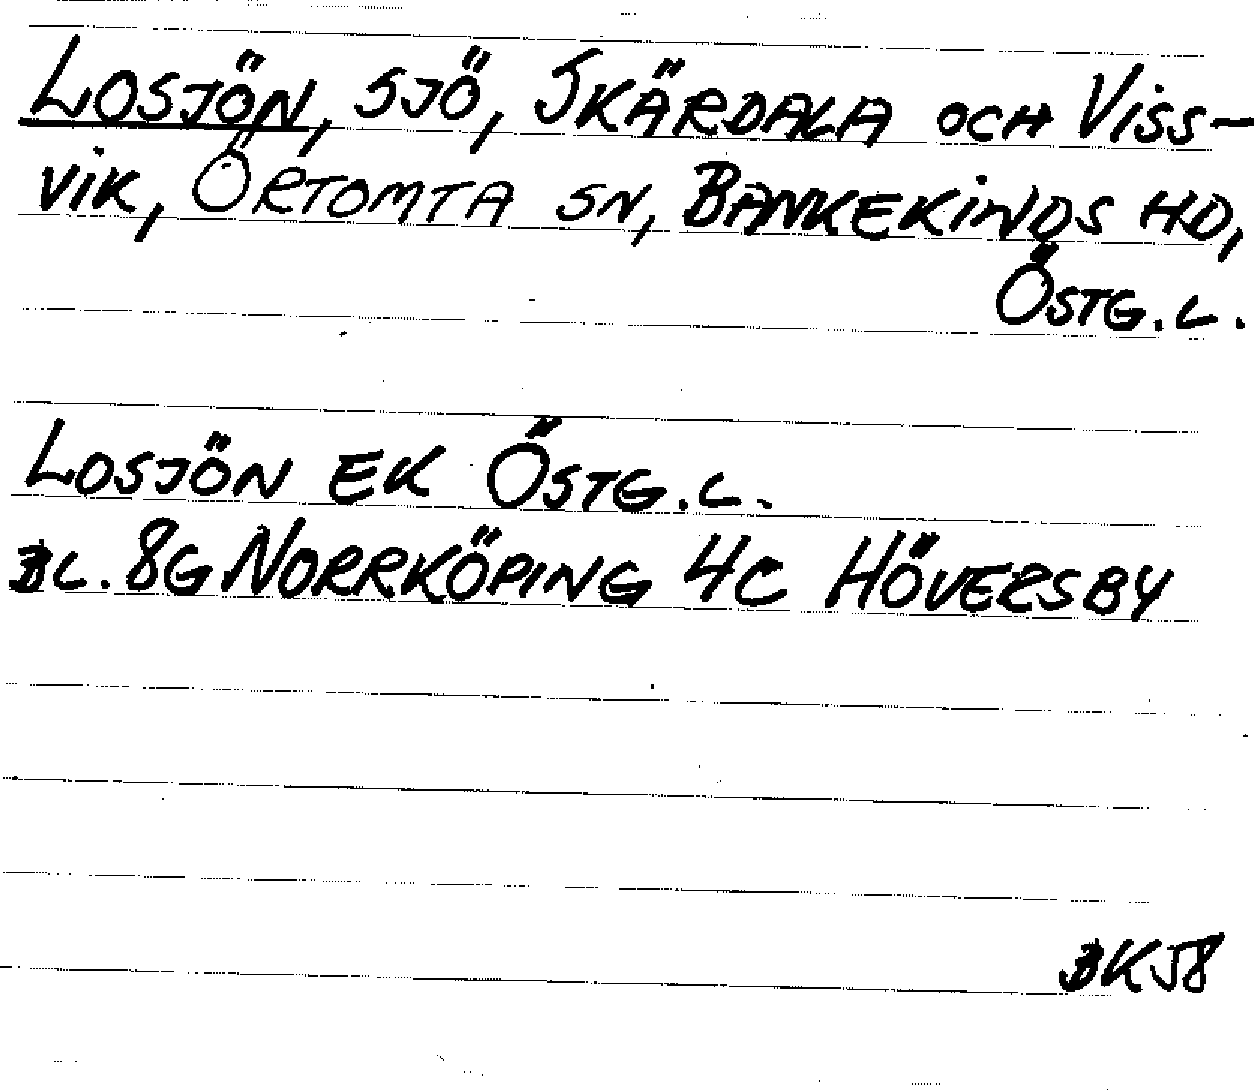 LOSJÖN, SJÖ, SKÄRDALA OCH VISS-
VIK, ÖRTOMTA SN, BANKEKINDS HD,
ÖSTG. L.
LOSJÖN EK ÖSTG. L.
BL. 8G NORRKÖPING 4C HÖVERSBY
BK58